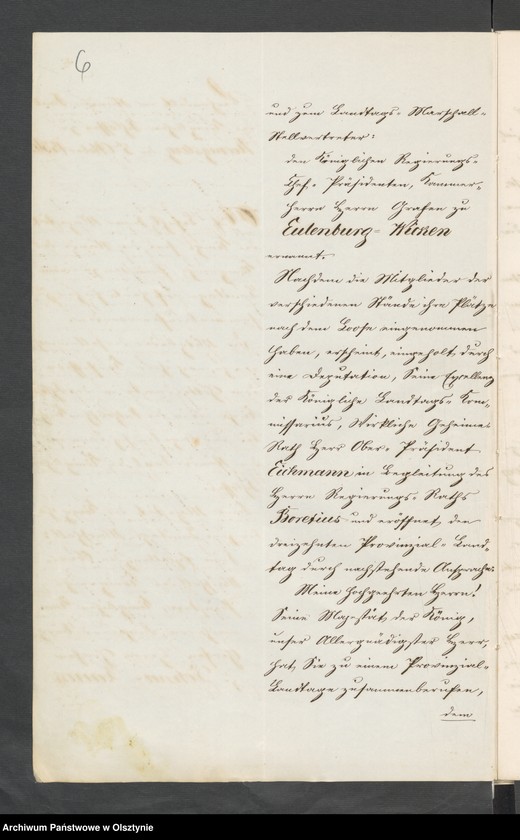 6
und zum Landtags-Marschall-
Stellvertreter:
den Königlichen Regierungs-
Chef-Präsidenten, Kammer-
herrn Herrn Grafen zu
Eulenburg-Wicken
ernannt.
Nachdem die Mitglieder der
verschiedenen Stände ihre Plätze
nach dem Loose eingenommen
haben, erscheint, eingeholt durch
eine Deputation, Seine Excellenz
der Königliche Landtags-Kom-
missarius, Wirkliche Geheime
Rath Herr Ober-Präsident
Eichmann in Begleitung des
Herrn Regierungs-Raths
Boretius und eröffnet den
dreizehnten Provinzial-Land-
tag durch nachstehende Ansprache:
Meine hochgeehrten Herrn!
Seine Majestät der König,
unser Allergnädigster Herr,
hat Sie zu einem Provinzial-
Landtage zusammenberufen,
dem
Archiwum Państwowe w Olsztynie